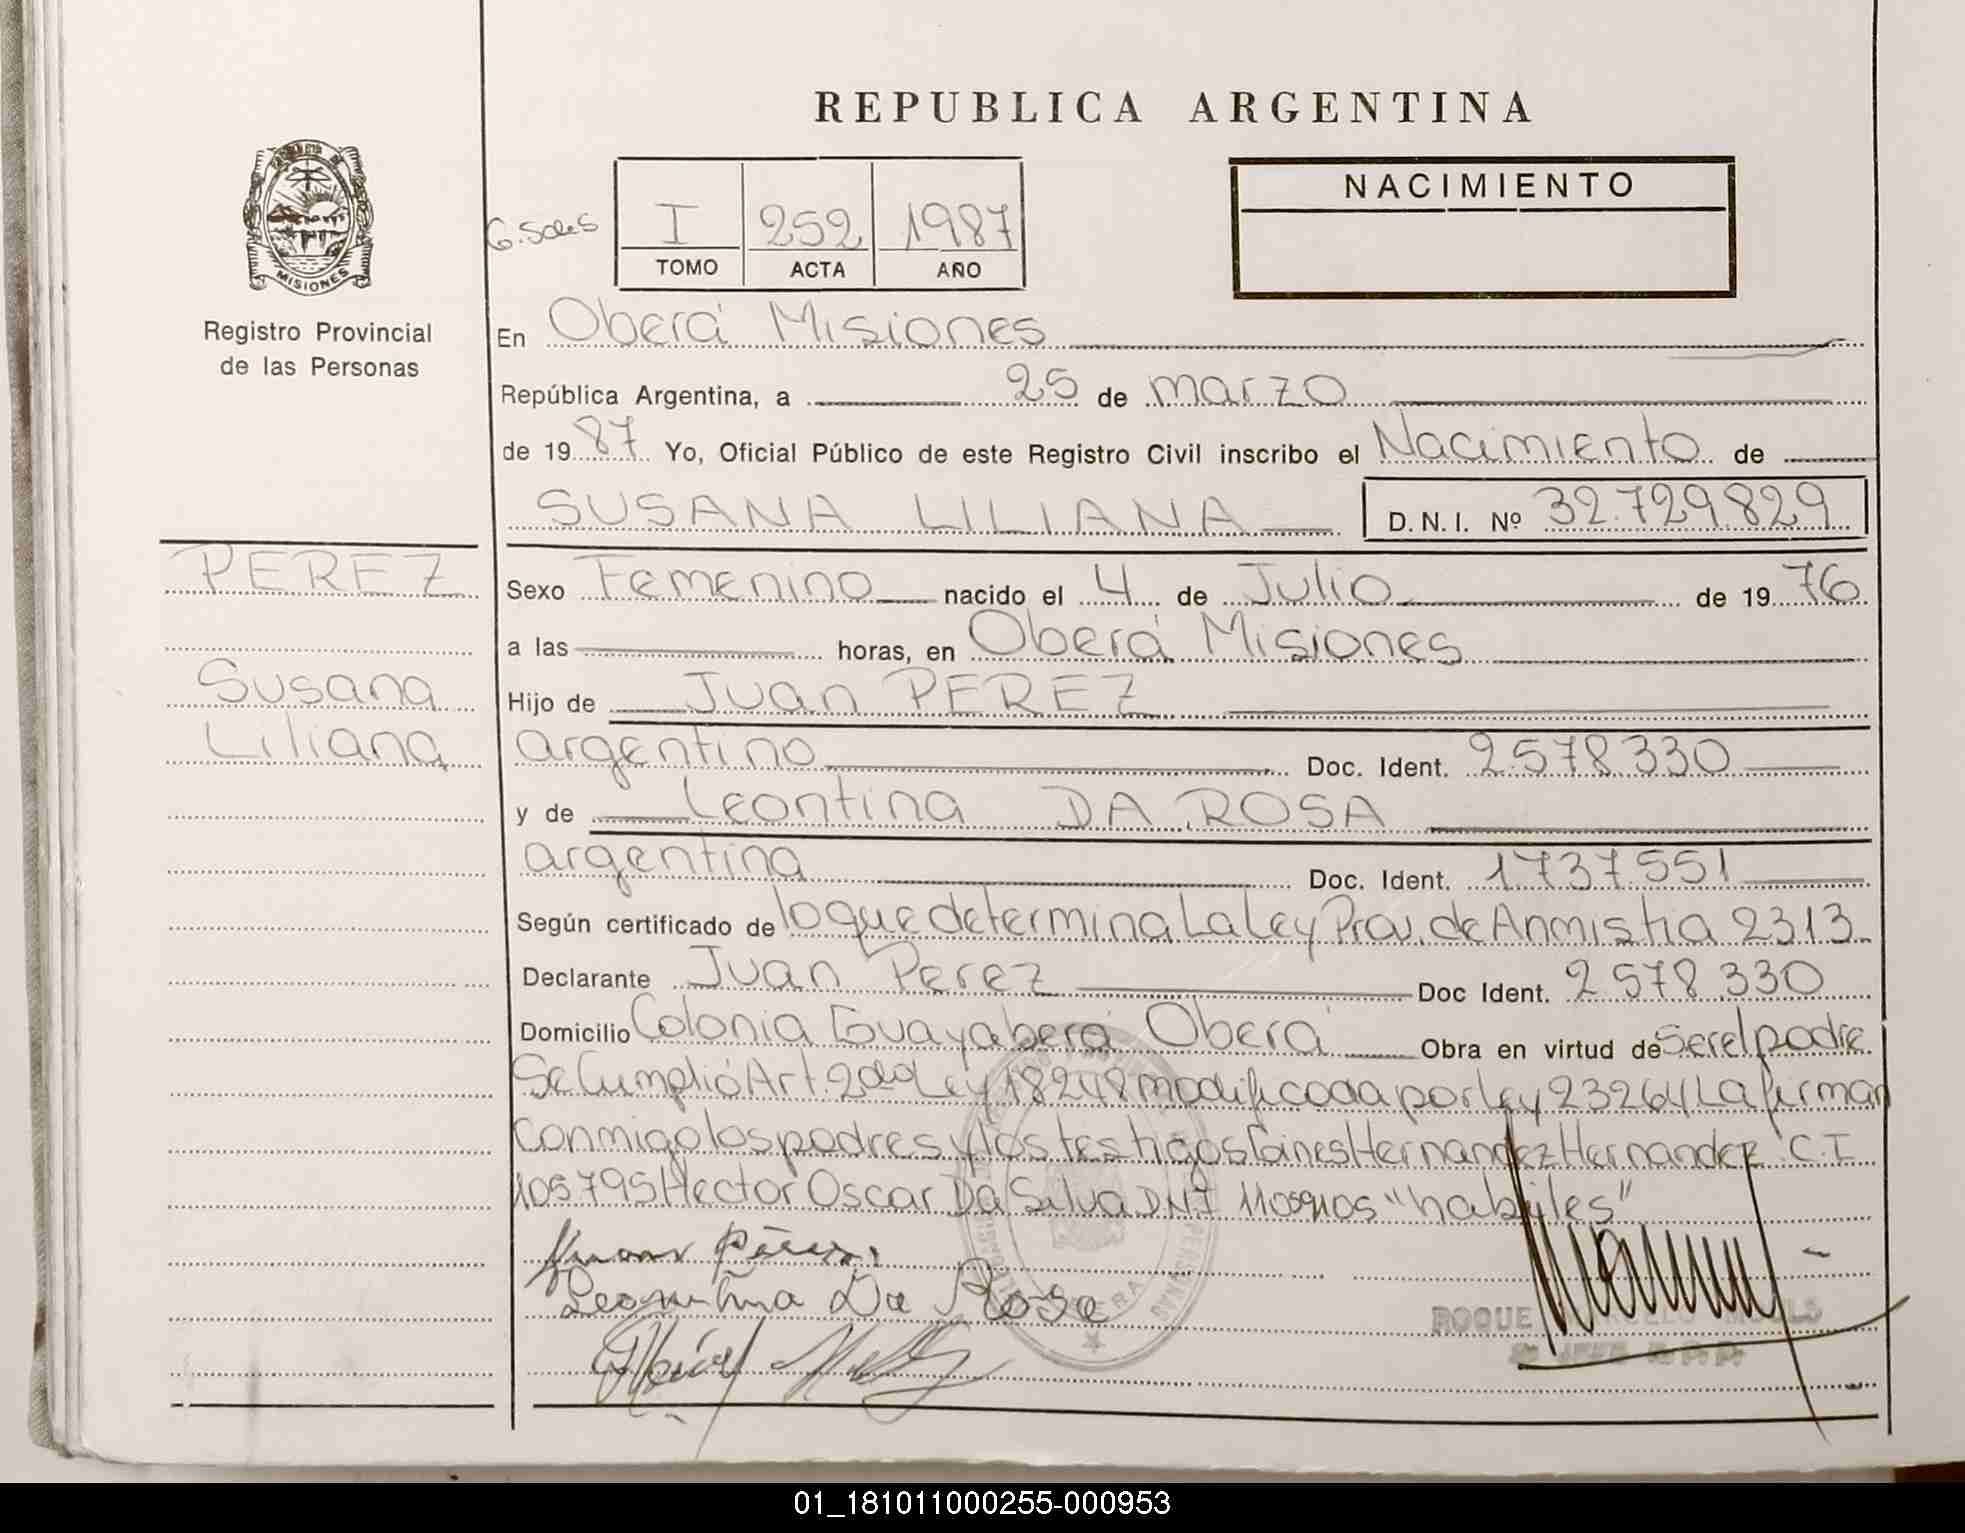 REPUBLICA ARGENTINA
NACIMIENTO
G. Soles
I 252 1987
TOMO ACTA AÑO
MISIONES
Registro Provincial
de las Personas
En Oberá Misiones
República Argentina, a 25 de marzo
de 19 87 Yo, Oficial Público de este Registro Civil inscribo el Nacimiento de
SUSANA LILIANA D.N.I. Nº 32.729.829
PEREZ
Susana
Liliana
Sexo Femenino nacido el 4 de Julio de 19 76
a las horas, en Oberá Misiones
Hijo de Juan PEREZ
argentino Doc. Ident. 2.578.330
y de Leontina DA ROSA
argentina Doc. Ident. 1.737.551
Según certificado de lo que determina La Ley Prov. de Anmistia 2313
Declarante Juan Perez Doc Ident. 2.578.330
Domicilio Colonia Guayabera Oberá Obra en virtud de Ser el padre
Se Cumplió Art. 2do Ley 18248 modificada por Ley 23264 La firman
Conmigo los padres y los testigos Hernandez Hernandez C.I
105795 Hector Oscar Da Silva DNI "habiles"
Juan Pérez
Leontina Da Rosa
ROQUE
01_181011000255-000953